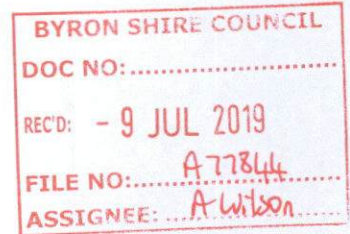 BYRON SHIRE COUNCIL
DOC NO:..............................
REC'D: - 9 JUL 2019
FILE NO:.....A77844......
ASSIGNEE:...A Wilson...